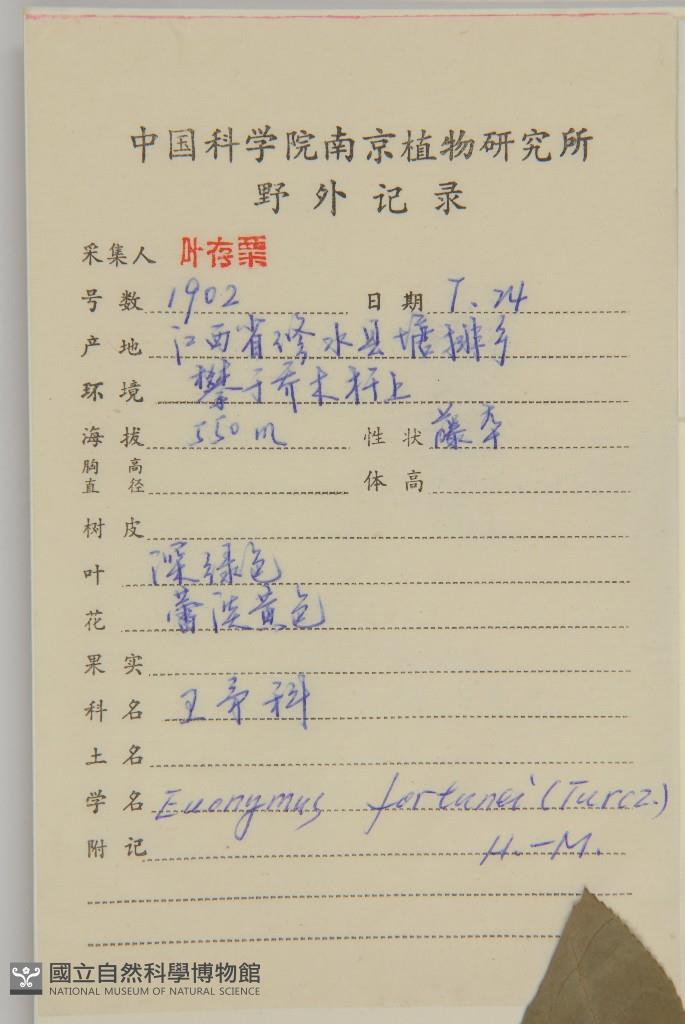 中国科学院南京植物研究所
野外记录
采集人 叶存栗
号数 1902 日期 7.24
产地 江西省修水县塘排乡
环境 攀于乔木杆上
海拔 550m 性状 藤本
胸高直径 体高
树皮
叶 深绿色
花 蕾淡黄色
果实
科名 卫矛科
土名
学名 Euonymus fortunei (Turcz.)
附记 H.-M.
國立自然科學博物館
NATIONAL MUSEUM OF NATURAL SCIENCE